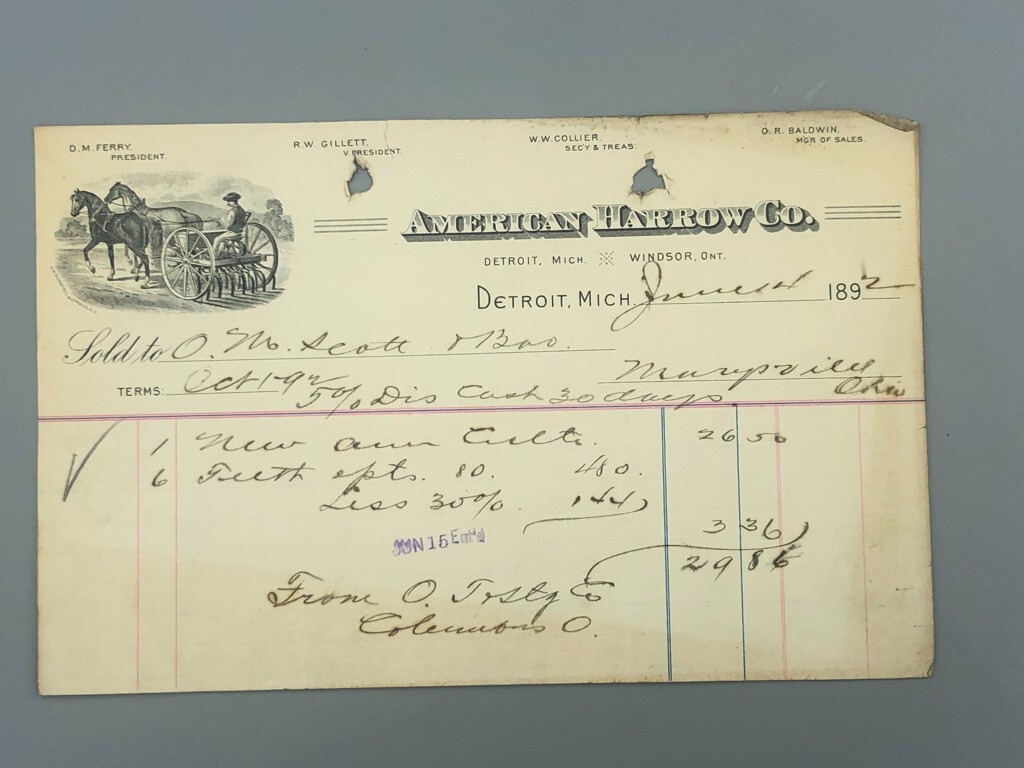 D.M. FERRY, PRESIDENT.
R.W. GILLETT, V. PRESIDENT.
W.W. COLLIER, SEC'Y & TREAS.
O.R. BALDWIN, MGR OF SALES.
AMERICAN HARROW CO.
DETROIT, MICH. WINDSOR, ONT.
DETROIT, MICH. June 14 1892
Sold to O. M. Scott & Bro.
Marysville Ohio
TERMS: Oct 1-92 5% Dis Cash 30 days
1 New Am Cult. 26 50
6 Teeth & pts. 80. 480.
Less 30% 144
3 36
JUN 15 Ent'd
29 86
From O.
Columbus O.